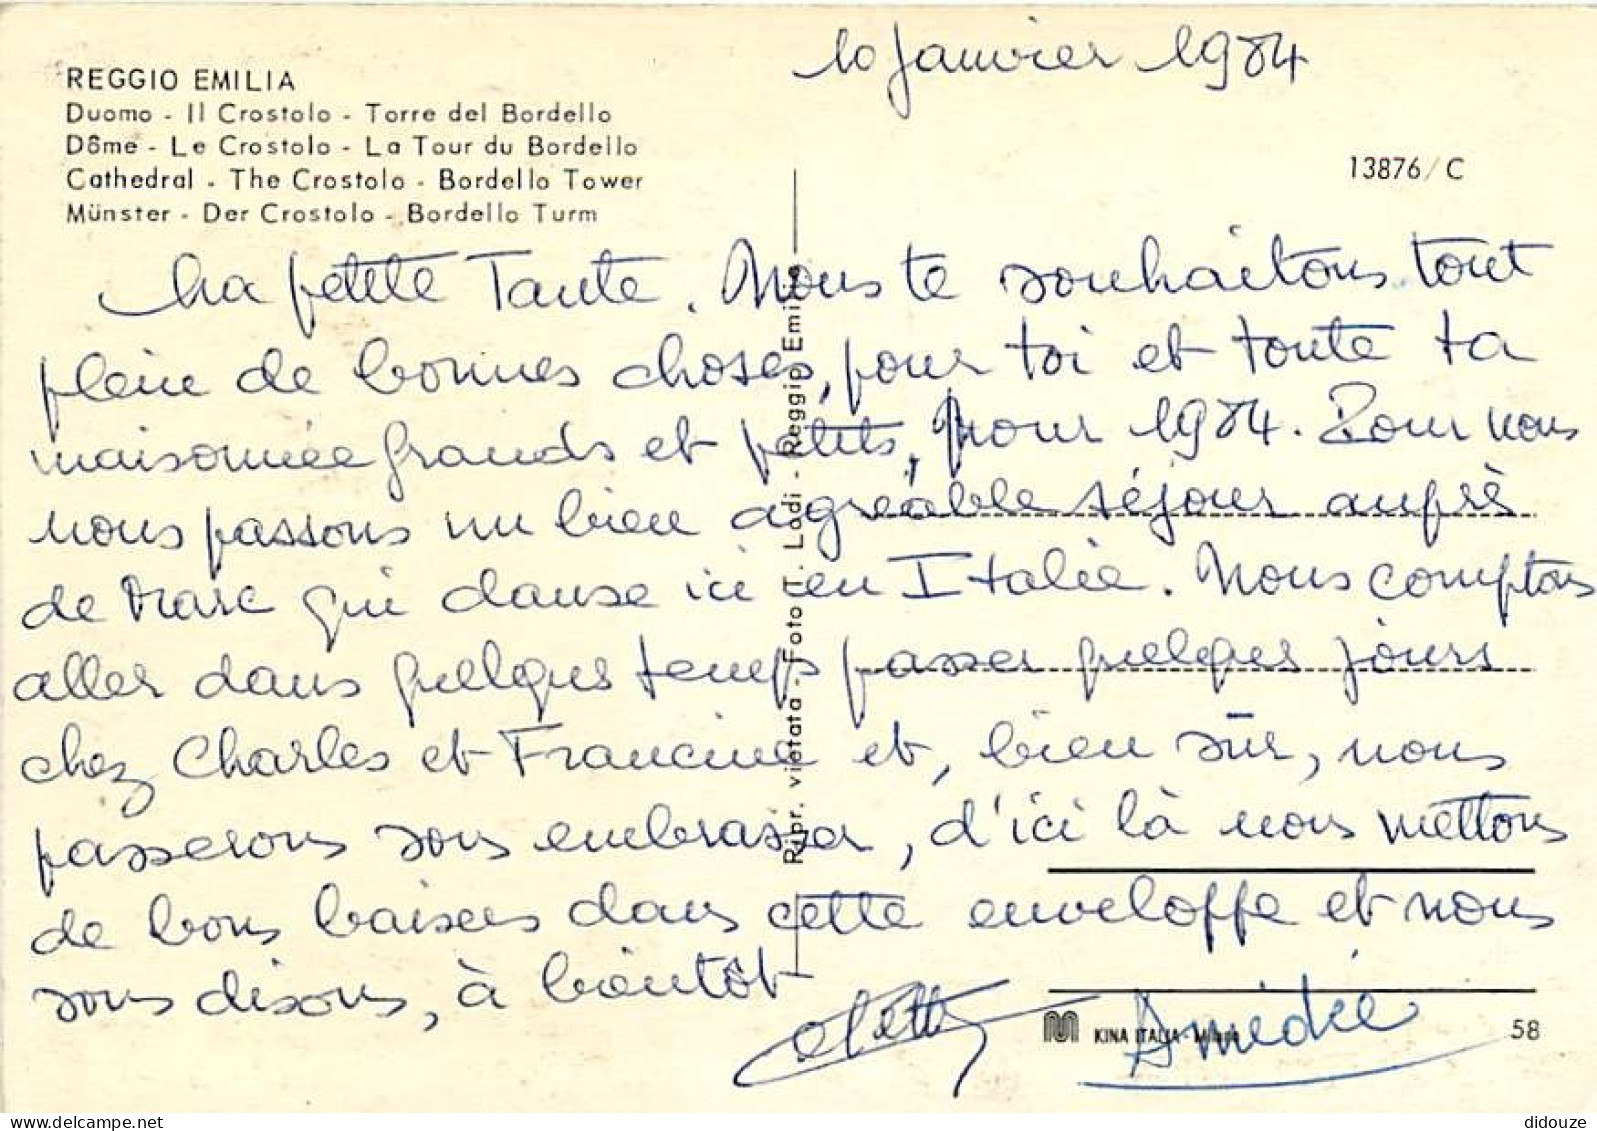 10 Janvier 1984
REGGIO EMILIA
Duomo - Il Crostolo - Torre del Bordello
Dôme - Le Crostolo - La Tour du Bordello
Cathedral - The Crostolo - Bordello Tower
Münster - Der Crostolo - Bordello Turm
13876/C
Ma petite Tante. Nous te souhaitons tout
plein de bonnes choses, pour toi et toute ta
maisonnée grands et petits, pour 1984. Pour nous
nous passons un bien agréable séjour auprès
de Marc qui danse ici en Italie. Nous comptons
aller dans quelques temps passer quelques jours
chez Charles et Francine et, bien sûr, nous
passerons vous embrasser, d'ici là nous mettons
de bons baisers dans cette enveloppe et nous
vous disons, à bientôt
Amédée
Ripr. vietata - Foto T. Lodi - Reggio Emilia
KINA ITALIA - Milano
58
didouze
delcampe.net